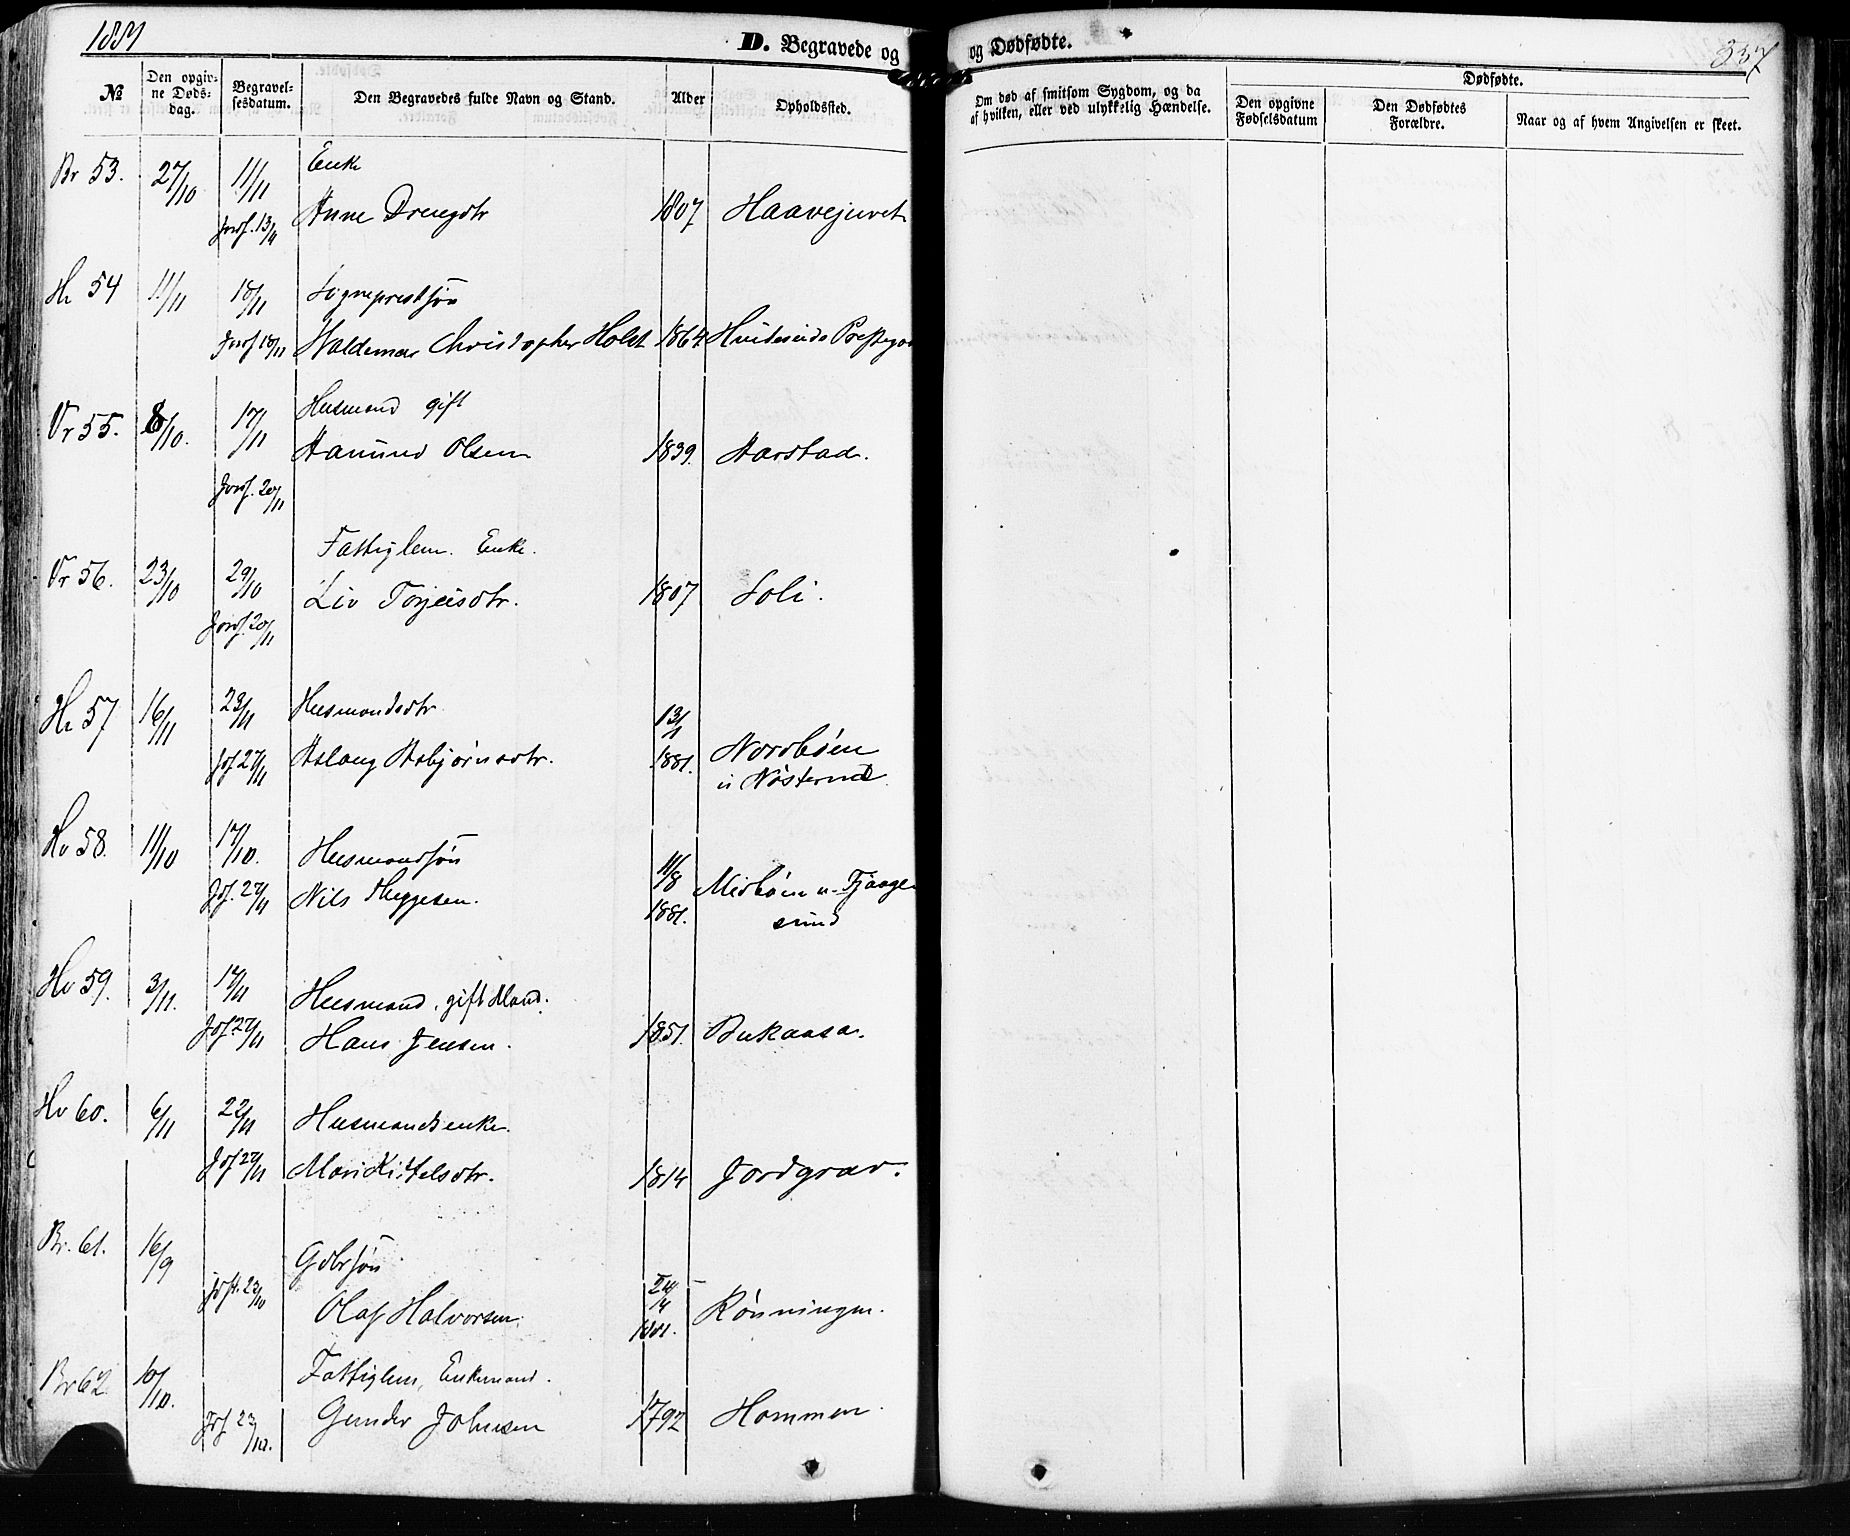 D. Begravede og
og Dødfødte.
337
№
Den opgivne Dødsdag.
Begravelsesdatum.
Den Begravedes fulde Navn og Stand.
Alder
Opholdssted.
Om død af smitsom Sygdom, og da af hvilken, eller ved ulykkelig Hændelse.
Dødfødte.
Den opgivne Fødselsdatum
Den Dødfødtes Forældre.
Naar og af hvem Angivelsen er skeet.
Br 53. 27/10 11/11 Enke
Anne Drengdtr 1807
Hv 54 11/11 18/11 Sogneprestsøn
Jordf 18/11 Waldemar Christopher Holst 1864 Hvideseids
Vr 55. 8/10. 17/11 Husmand gift
Aanund Olsen 1839. Aarstad.
Jordf. 20/11
Vr 56. 23/10 29/10 Fattiglem. Enke.
Liv Torjeisdtr. 1807 Soli.
Jordf. 20/11
Hv 57 16/11 23/11 Husmandsdtr 13/1
Jdf 27/11 Aslaug Asbjørnsdtr. 1881. Nordbøen
u Nøsterud
Hv 58. 11/10 17/10. Husmandssøn 11/8
Jdf. 27/11 Nils Heggesen. 1881. Midbøen u. Fjaage
sund
Hv 59. 3/11. 17/11 Husmand, gift Mand.
Jdf 27/11 Hans Jensen. 1851. Bukaasa.
Hv 60. 6/11 22/11 Husmandsenke.
Jdf 27/11 Mari Kittelsdtr. 1814 Jordgrav.
Br. 61. 16/9 Gdbrsøn
Olaf Halvorsen. Rønningen.
Br 62. 10/10. Fattiglem, Enkemand.
Gunder Johnsen 1792 Hommen.